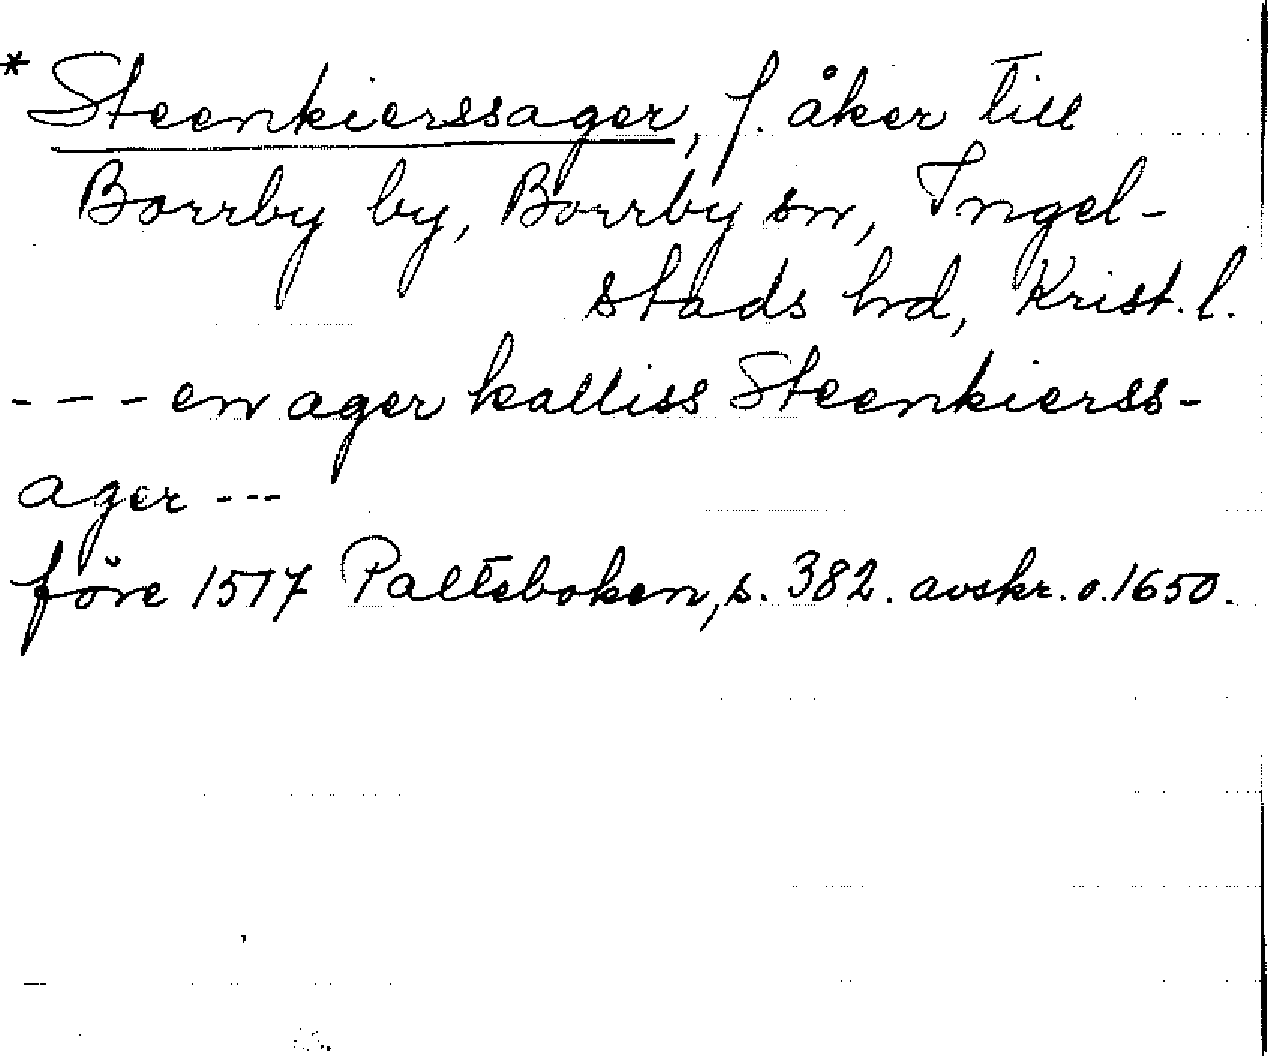 * Steenkierssager, f. åker till
Borrby by, Borrby sn, Ingel-
stads hd, Krist. l.
- - - en ager kalliss Steenkierss-
ager ---
före 1517 Palteboken, s. 382. avskr. o. 1650.